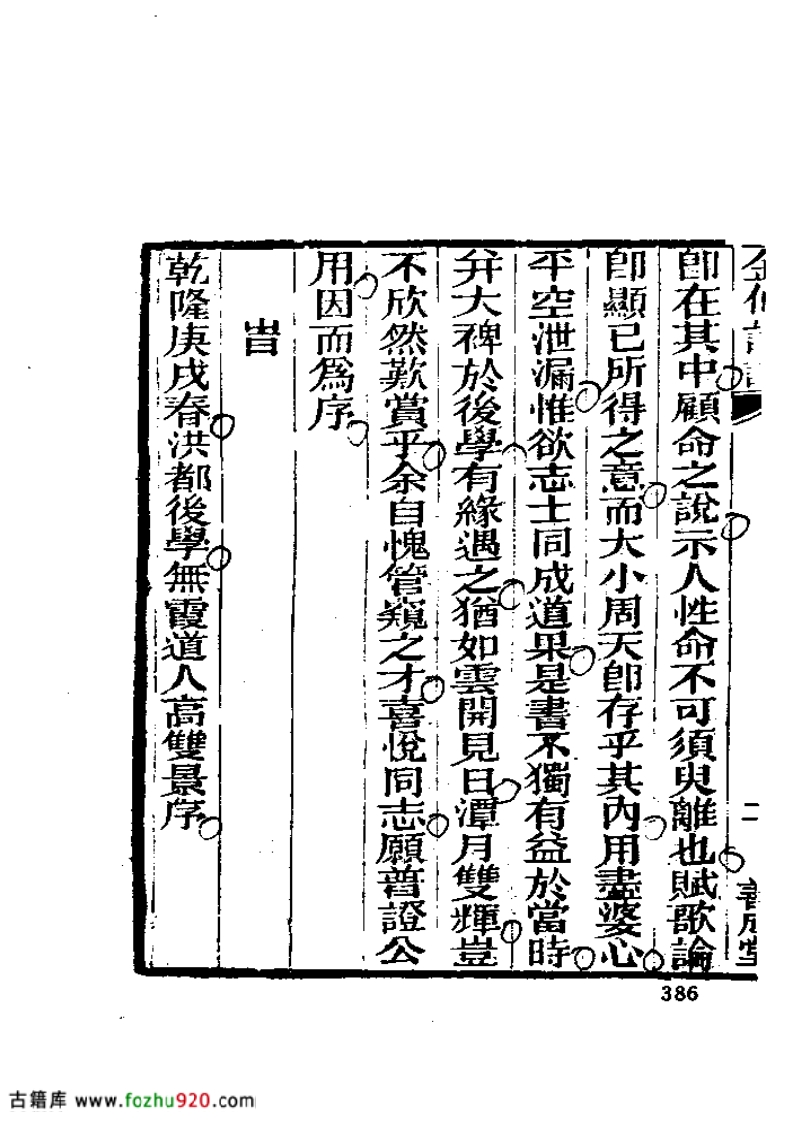 二
善成堂
卽在其中顧命之說示人性命不可須臾離也賦歌論
卽顯已所得之意而大小周天卽存乎其內用盡婆心
平空泄漏惟欲志士同成道果是書不獨有益於當時
弁大裨於後學有緣遇之猶如雲開見日潭月雙輝豈
不欣然歎賞乎余自愧管窺之才喜悅同志願普證公
用因而爲序
旹
乾隆庚戌春洪都後學無霞道人高雙景序
386
古籍库 www.fozhu920.com